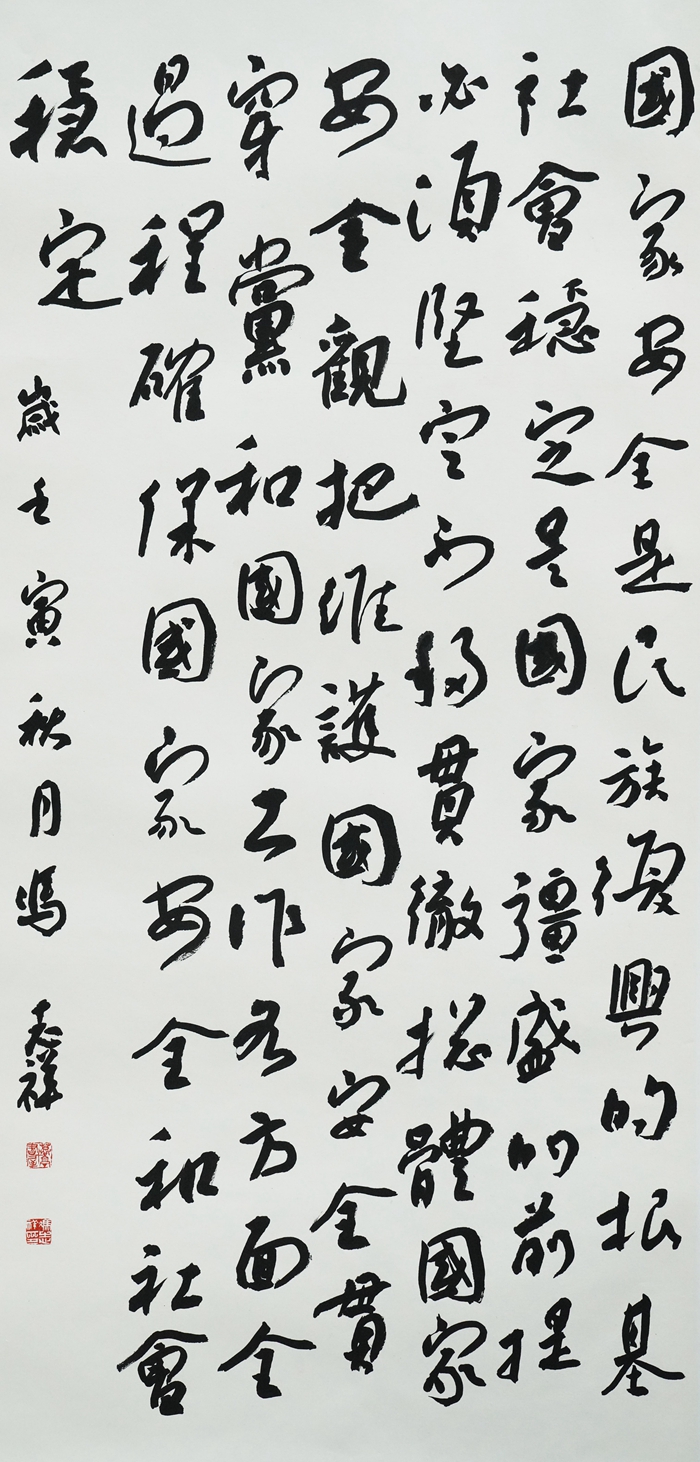 國家安全是民族復興的根基
社會穩定是國家彊盛的前提
必須堅定不移貫徹總體國家
安全觀把維護國家安全貫
穿黨和國家工作各方面全
過程確保國家安全和社會
穩定
歲壬寅秋月馮志祥